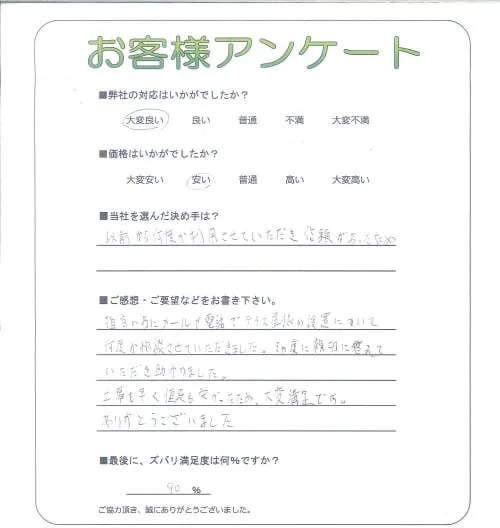 お客様アンケート
■弊社の対応はいかがでしたか？
大変良い 良い 普通 不満 大変不満
■価格はいかがでしたか？
大変安い 安い 普通 高い 大変高い
■当社を選んだ決め手は？
以前から何度か利用させていただき信頼があったため
■ご感想・ご要望などをお書き下さい。
担当の方にメールや電話でテラス屋根の設置において
何度か相談させていただきました。毎度に親切に答えて
いただき助かりました。
工事も早く値段も安かったため、大変満足です。
ありがとうございました
■最後に、ズバリ満足度は何%ですか？
90 %
ご協力頂き、誠にありがとうございました。